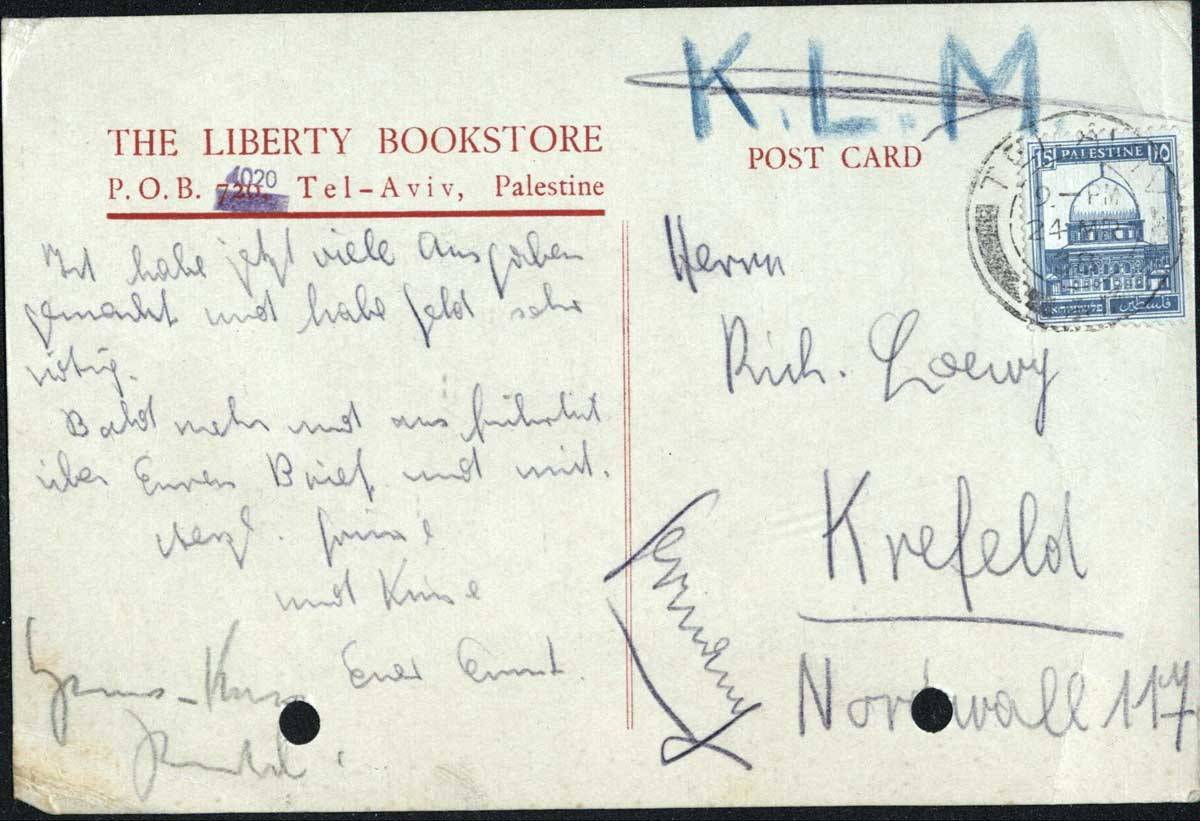 K.L.M.
THE LIBERTY BOOKSTORE
P.O.B. 720, 4020 Tel-Aviv, Palestine
POST CARD
15 PALESTINE ١٥
TEL AVIV
9.- PM
24 MR
فلسطين
Ich habe jetzt viele Ausgaben
gemacht und habe Geld sehr
nötig.
Bald mehr und ausführlich
über Euren Brief und mit.
Herzl. Grüsse
und Küsse
Euer Ernst.
Gruss - Kuss
Herrn
Rich. Loewy
Krefeld
Germany
Nordwall 117